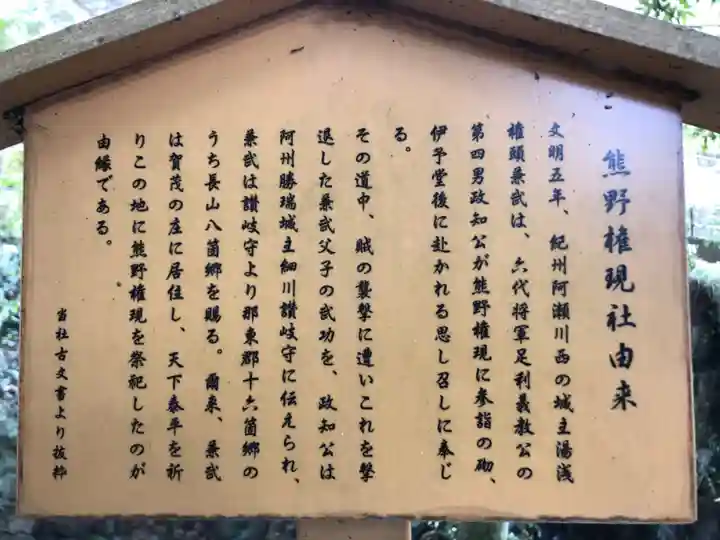 熊野権現社由来
文明五年、紀州阿瀬川西の城主湯浅
権頭兼武は、六代将軍足利義教公の
第四男政知公が熊野権現に参詣の砌、
伊予堂後に赴かれる思し召しに奉じ
る。
その道中、賊の襲撃に遭いこれを撃
退した兼武父子の武功を、政知公は
阿州勝瑞城主細川讃岐守に伝えられ、
兼武は讃岐守より那東郡十六箇郷の
うち長山八箇郷を賜る。爾来、兼武
は賀茂の庄に居住し、天下泰平を祈
りこの地に熊野権現を祭祀したのが
由縁である。
当社古文書より抜粋